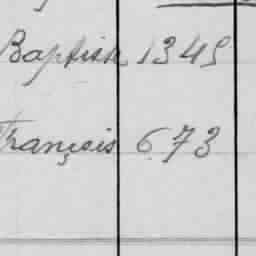 Baptiste 1345
François 673